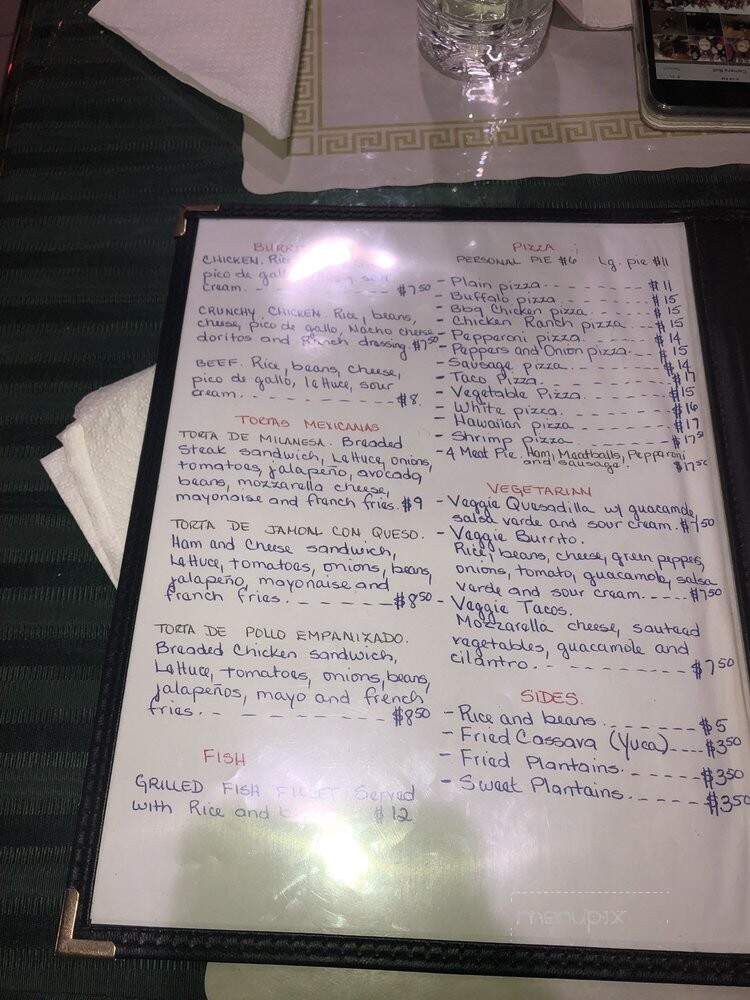 CHICKEN. Rice
pico de gallo
cream. - - - - - - $7.50
CRUNCHY CHICKEN. Rice, beans,
cheese, pico de gallo, Nacho cheese
doritos and Ranch dressing. $7.50
BEEF. Rice, beans, cheese,
pico de gallo, lettuce, sour
cream. - - - - - - $8
TORTAS MEXICANAS
TORTA DE MILANESA. Breaded
Steak sandwich, Lettuce, onions,
tomatoes, jalapeño, avocado,
beans, mozzarella cheese,
mayonaise and french fries. $9
TORTA DE JAMON CON QUESO.
Ham and Cheese sandwich,
Lettuce, tomatoes, onions, beans,
jalapeño, mayonaise and
french fries. - - - - - - $8.50
TORTA DE POLLO EMPANIZADO.
Breaded Chicken sandwich,
Lettuce, tomatoes, onions, beans,
jalapeños, mayo and french
fries. - - - - - - - - $8.50
FISH
GRILLED FISH FILLET Served
with Rice and $12
PIZZA
PERSONAL PIE $6 Lg. pie $11
- Plain pizza - - - - - - $11
- Buffalo pizza - - - - - - $15
- Bbq Chicken pizza - - - - - - $15
- Chicken Ranch pizza - - - - $15
- Pepperoni pizza - - - - - - $14
- Peppers and Onion pizza - - - - $15
- Sausage pizza - - - - - - $14
- Taco Pizza - - - - - - $17
- Vegetable Pizza - - - - - - $15
- White pizza - - - - - - $16
- Hawaiian pizza - - - - - - $17
- Shrimp pizza - - - - - - $17.50
- 4 Meat Pie. Ham, Meatballs, Pepperoni
and sausage. $17.50
VEGETARIAN
- Veggie Quesadilla w/ guacamole,
salsa verde and sour cream. $7.50
- Veggie Burrito.
Rice, beans, cheese, green pepper,
onions, tomato, guacamole, salsa
verde and sour cream. - - - - $7.50
- Veggie Tacos.
Mozzarella cheese, sauteed
vegetables, guacamole and
cilantro. - - - - - - $7.50
SIDES.
- Rice and beans. - - - - - - $5
- Fried Cassava (Yuca) - - - $3.50
- Fried Plantains. - - - - - $3.50
- Sweet Plantains. - - - - - $3.50
menupix